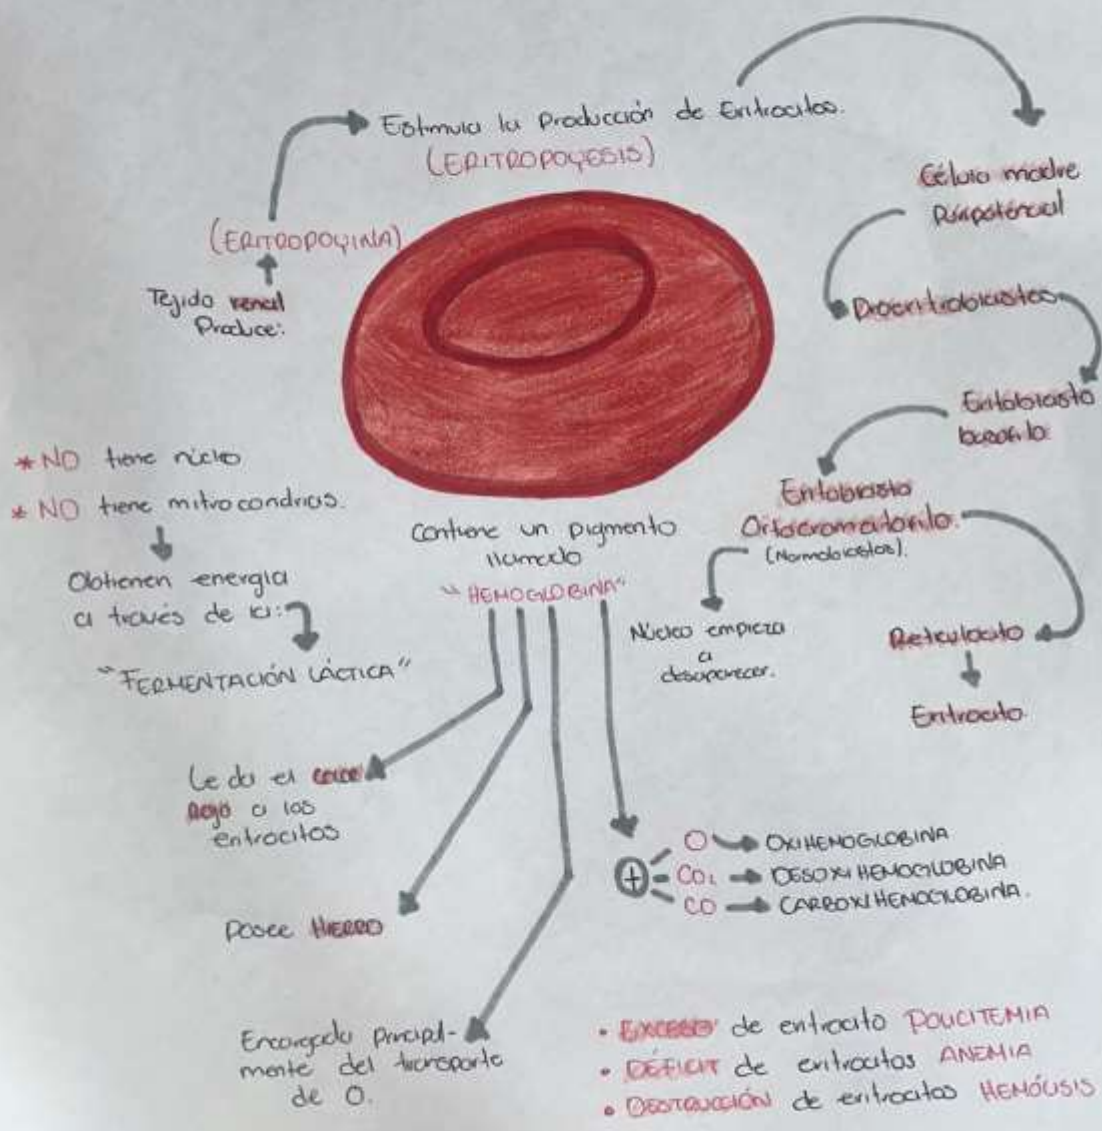 Estimula la Producción de Eritrocitos.
(ERITROPOYESIS)
(ERITROPOYINA)
Tejido renal
Produce:
Célula madre
Puripotencial
Proeritroblastos
Eritoblasto
basofilo
Eritoblasto
Ortocromatofilo.
(Normoblastos).
Núcleo empieza
a
desaparecer.
Reticulocito
Eritrocito
* NO tiene núcleo
* NO tiene mitrocondrias.
Obtienen energía
a través de la:
"FERMENTACIÓN LÁCTICA"
Contiene un pigmento
llamado
"HEMOGLOBINA"
Le da el color
Rojo a los
eritrocitos
Posee HIERRO
Encargado principal-
mente del transporte
de O.
+
O OXIHEMOGLOBINA
CO₂ DESOXIHEMOGLOBINA
CO CARBOXIHEMOGLOBINA.
• EXCESO de eritrocito POLICITEMIA
• DÉFICIT de eritrocitos ANEMIA
• DESTRUCCIÓN de eritrocitos HEMÓLISIS